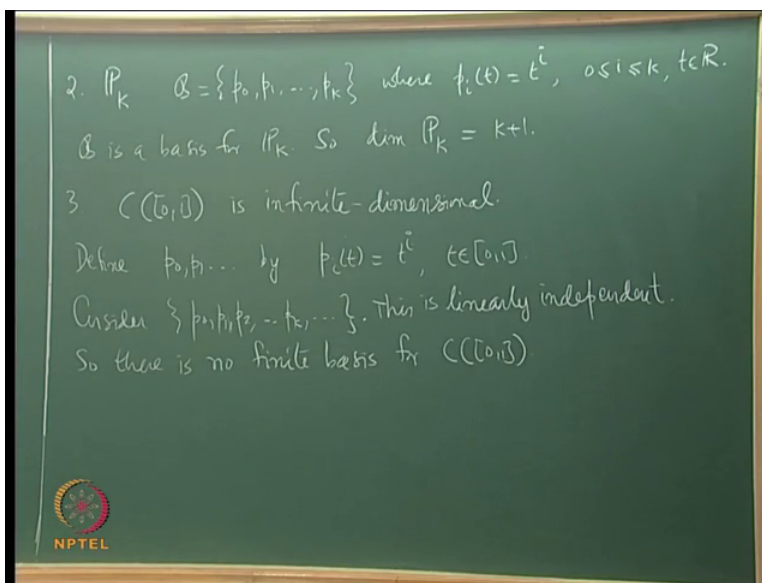 2. ℙ_k ℬ = {p₀, p₁, ..., p_k} where p_i(t) = t^i, 0≤i≤k, t∈ℝ.
ℬ is a basis for ℙ_k. So dim ℙ_k = k+1.
3 C([0,1]) is infinite-dimensional.
Define p₀, p₁ ... by p_i(t) = t^i, t∈[0,1]
Consider {p₀, p₁, p₂, .. p_k, ... }. This is linearly independent.
So there is no finite basis for C([0,1])
NPTEL